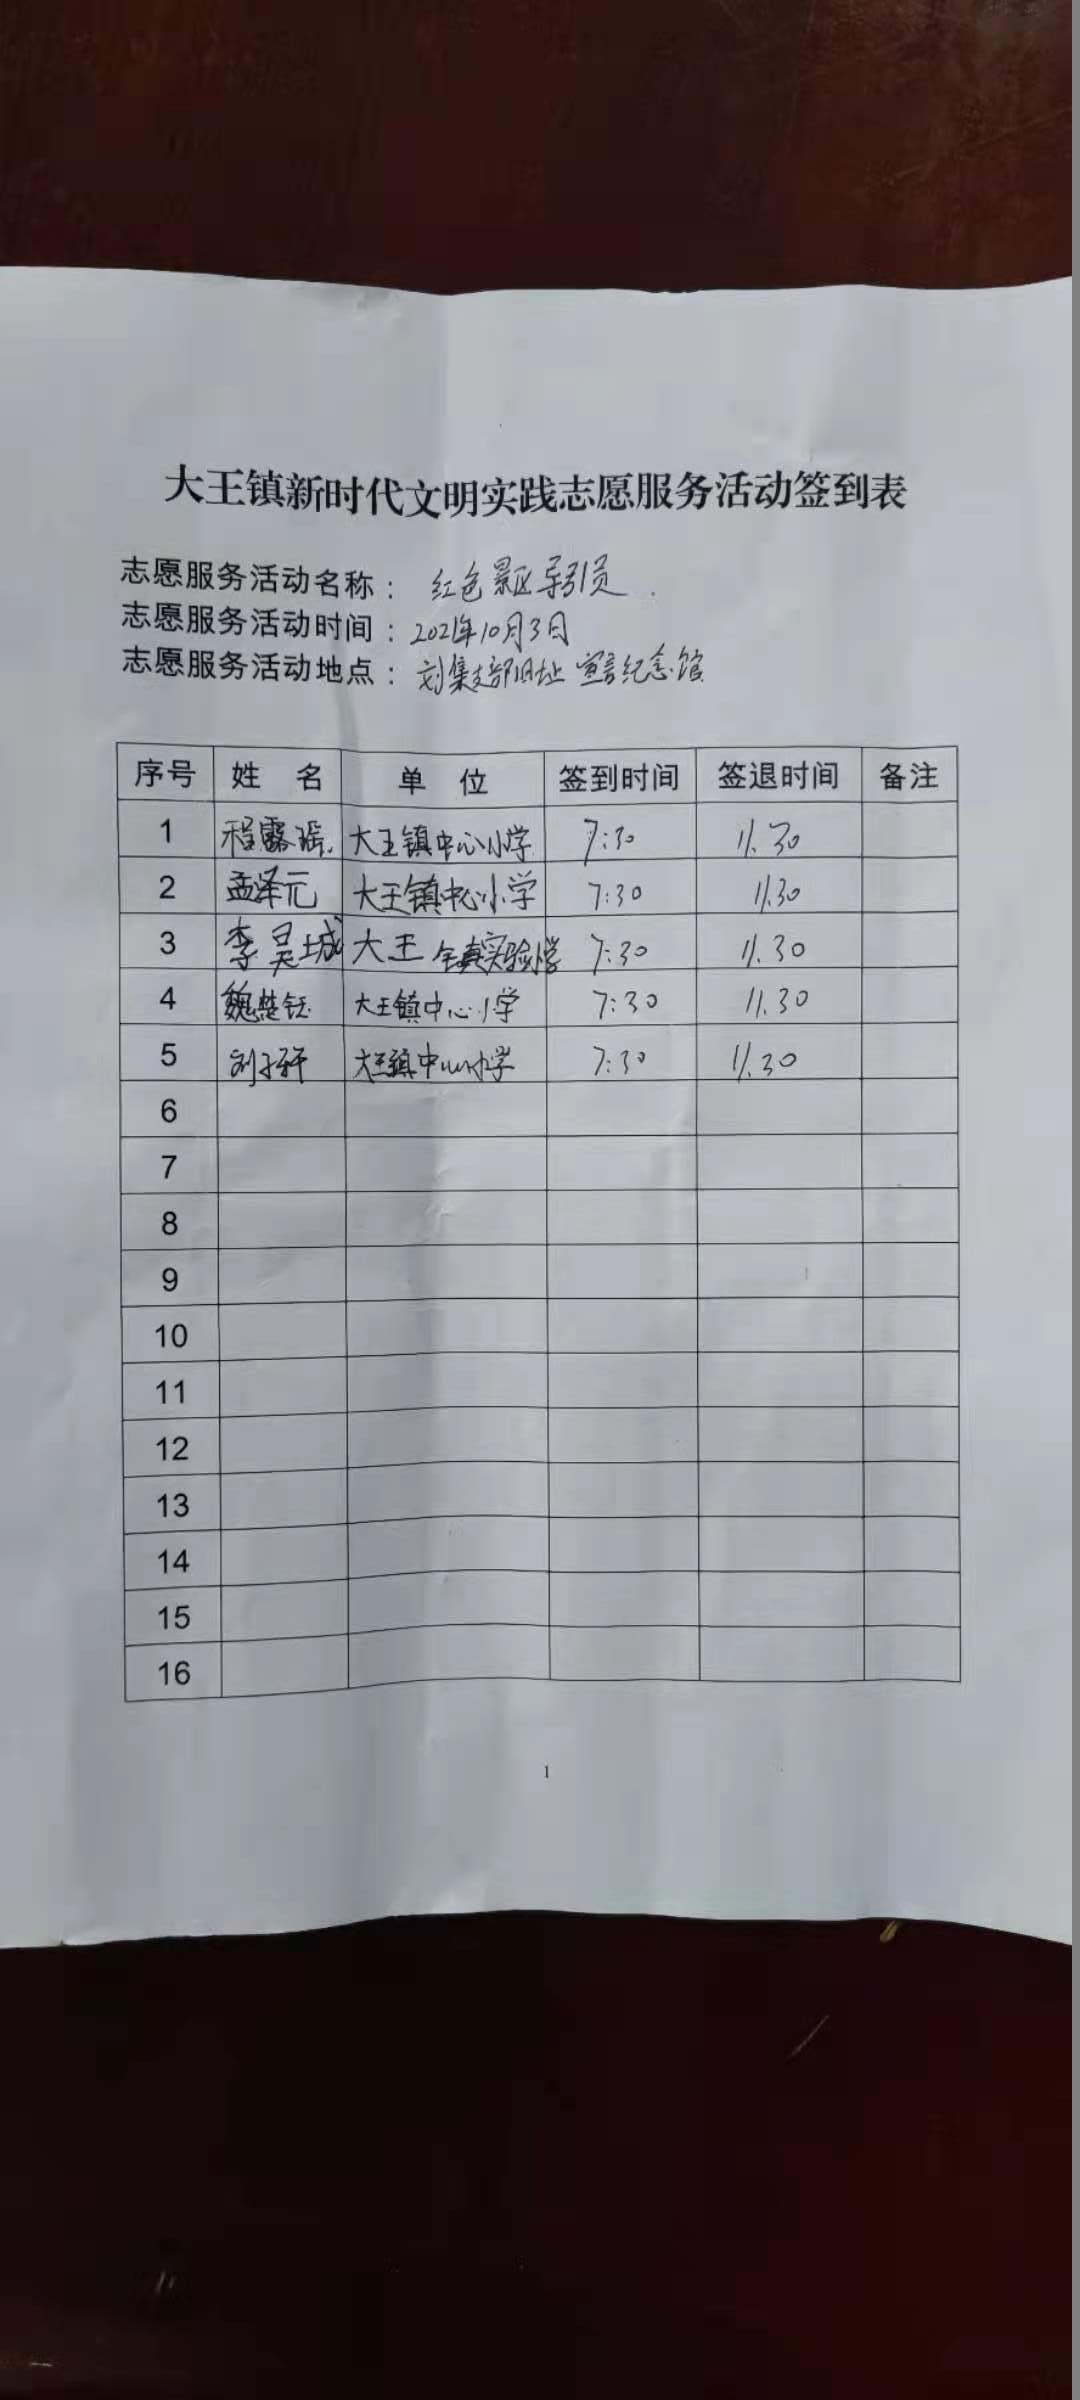 大王镇新时代文明实践志愿服务活动签到表
志愿服务活动名称： 红色景区导引员.
志愿服务活动时间：2021年10月3日
志愿服务活动地点： 刘集支部旧址 宣言纪念馆
序号 姓 名 单 位 签到时间 签退时间 备注
1 程露瑶. 大王镇中心小学 7:30 11.30
2 孟泽元 大王镇中心小学 7:30 11.30
3 李昊城 大王镇实验小学 7:30 11.30
4 魏楚钰 大王镇中心小学 7:30 11.30
5 刘子轩 大王镇中心小学 7:30 11.30
6
7
8
9
10
11
12
13
14
15
16
1